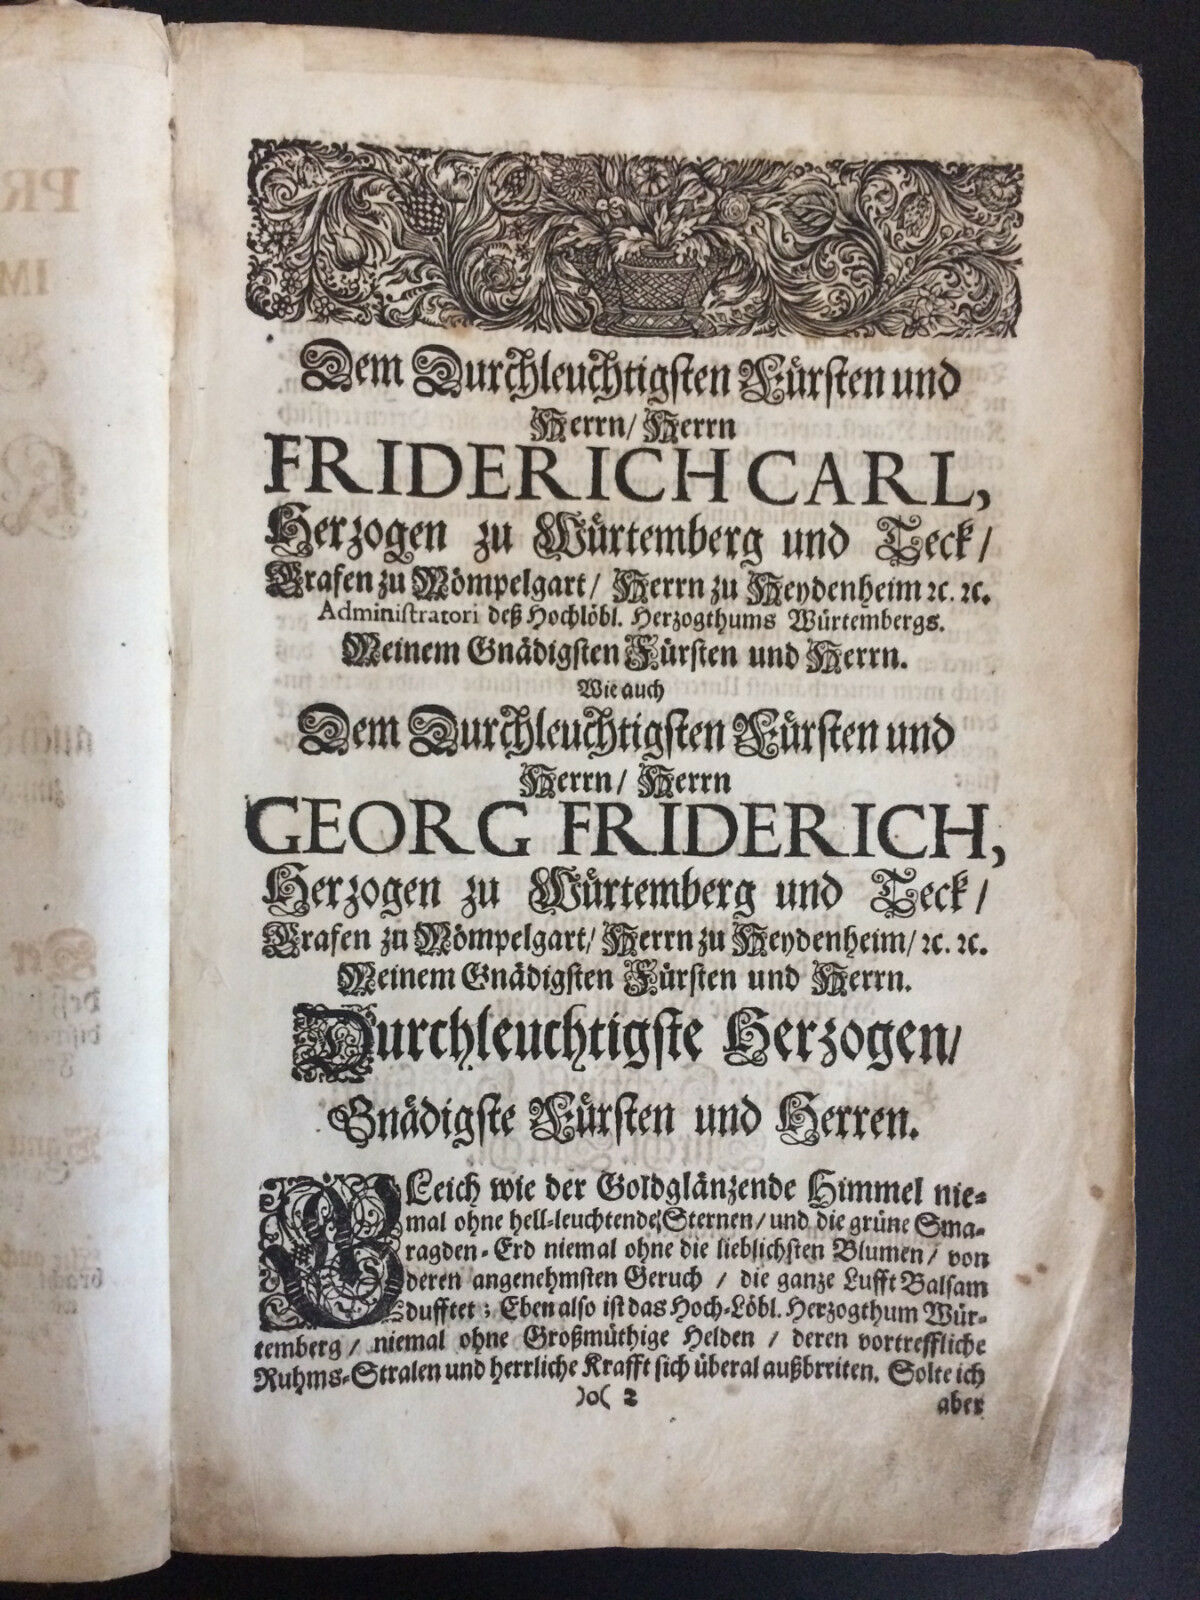 PR
IM
Dem Durchleuchtigsten Fürsten und
Herrn/ Herrn
FRIDERICH CARL,
Herzogen zu Würtemberg und Teck/
Grafen zu Mömpelgart/ Herrn zu Heydenheim ꝛc. ꝛc.
Administratori deß Hochlöbl. Herzogthums Würtembergs.
Meinem Gnädigsten Fürsten und Herrn.
Wie auch
Dem Durchleuchtigsten Fürsten und
Herrn/ Herrn
GEORG FRIDERICH,
Herzogen zu Würtemberg und Teck/
Grafen zu Mömpelgart/ Herrn zu Heydenheim/ ꝛc. ꝛc.
Meinem Gnädigsten Fürsten und Herrn.
Durchleuchtigste Herzogen/
Gnädigste Fürsten und Herren.
GLeich wie der Goldglänzende Himmel nie-
mal ohne hell-leuchtende Sternen/ und die grüne Sma-
ragden-Erd niemal ohne die lieblichsten Blumen/ von
deren angenehmsten Geruch / die ganze Lufft Balsam
dufftet; Eben also ist das Hoch-Löbl. Herzogthum Wür-
temberg / niemal ohne Großmüthige Helden / deren vortreffliche
Ruhms-Stralen und herrliche Krafft sich überal außbrreiten. Solte ich
)o( 2
aber